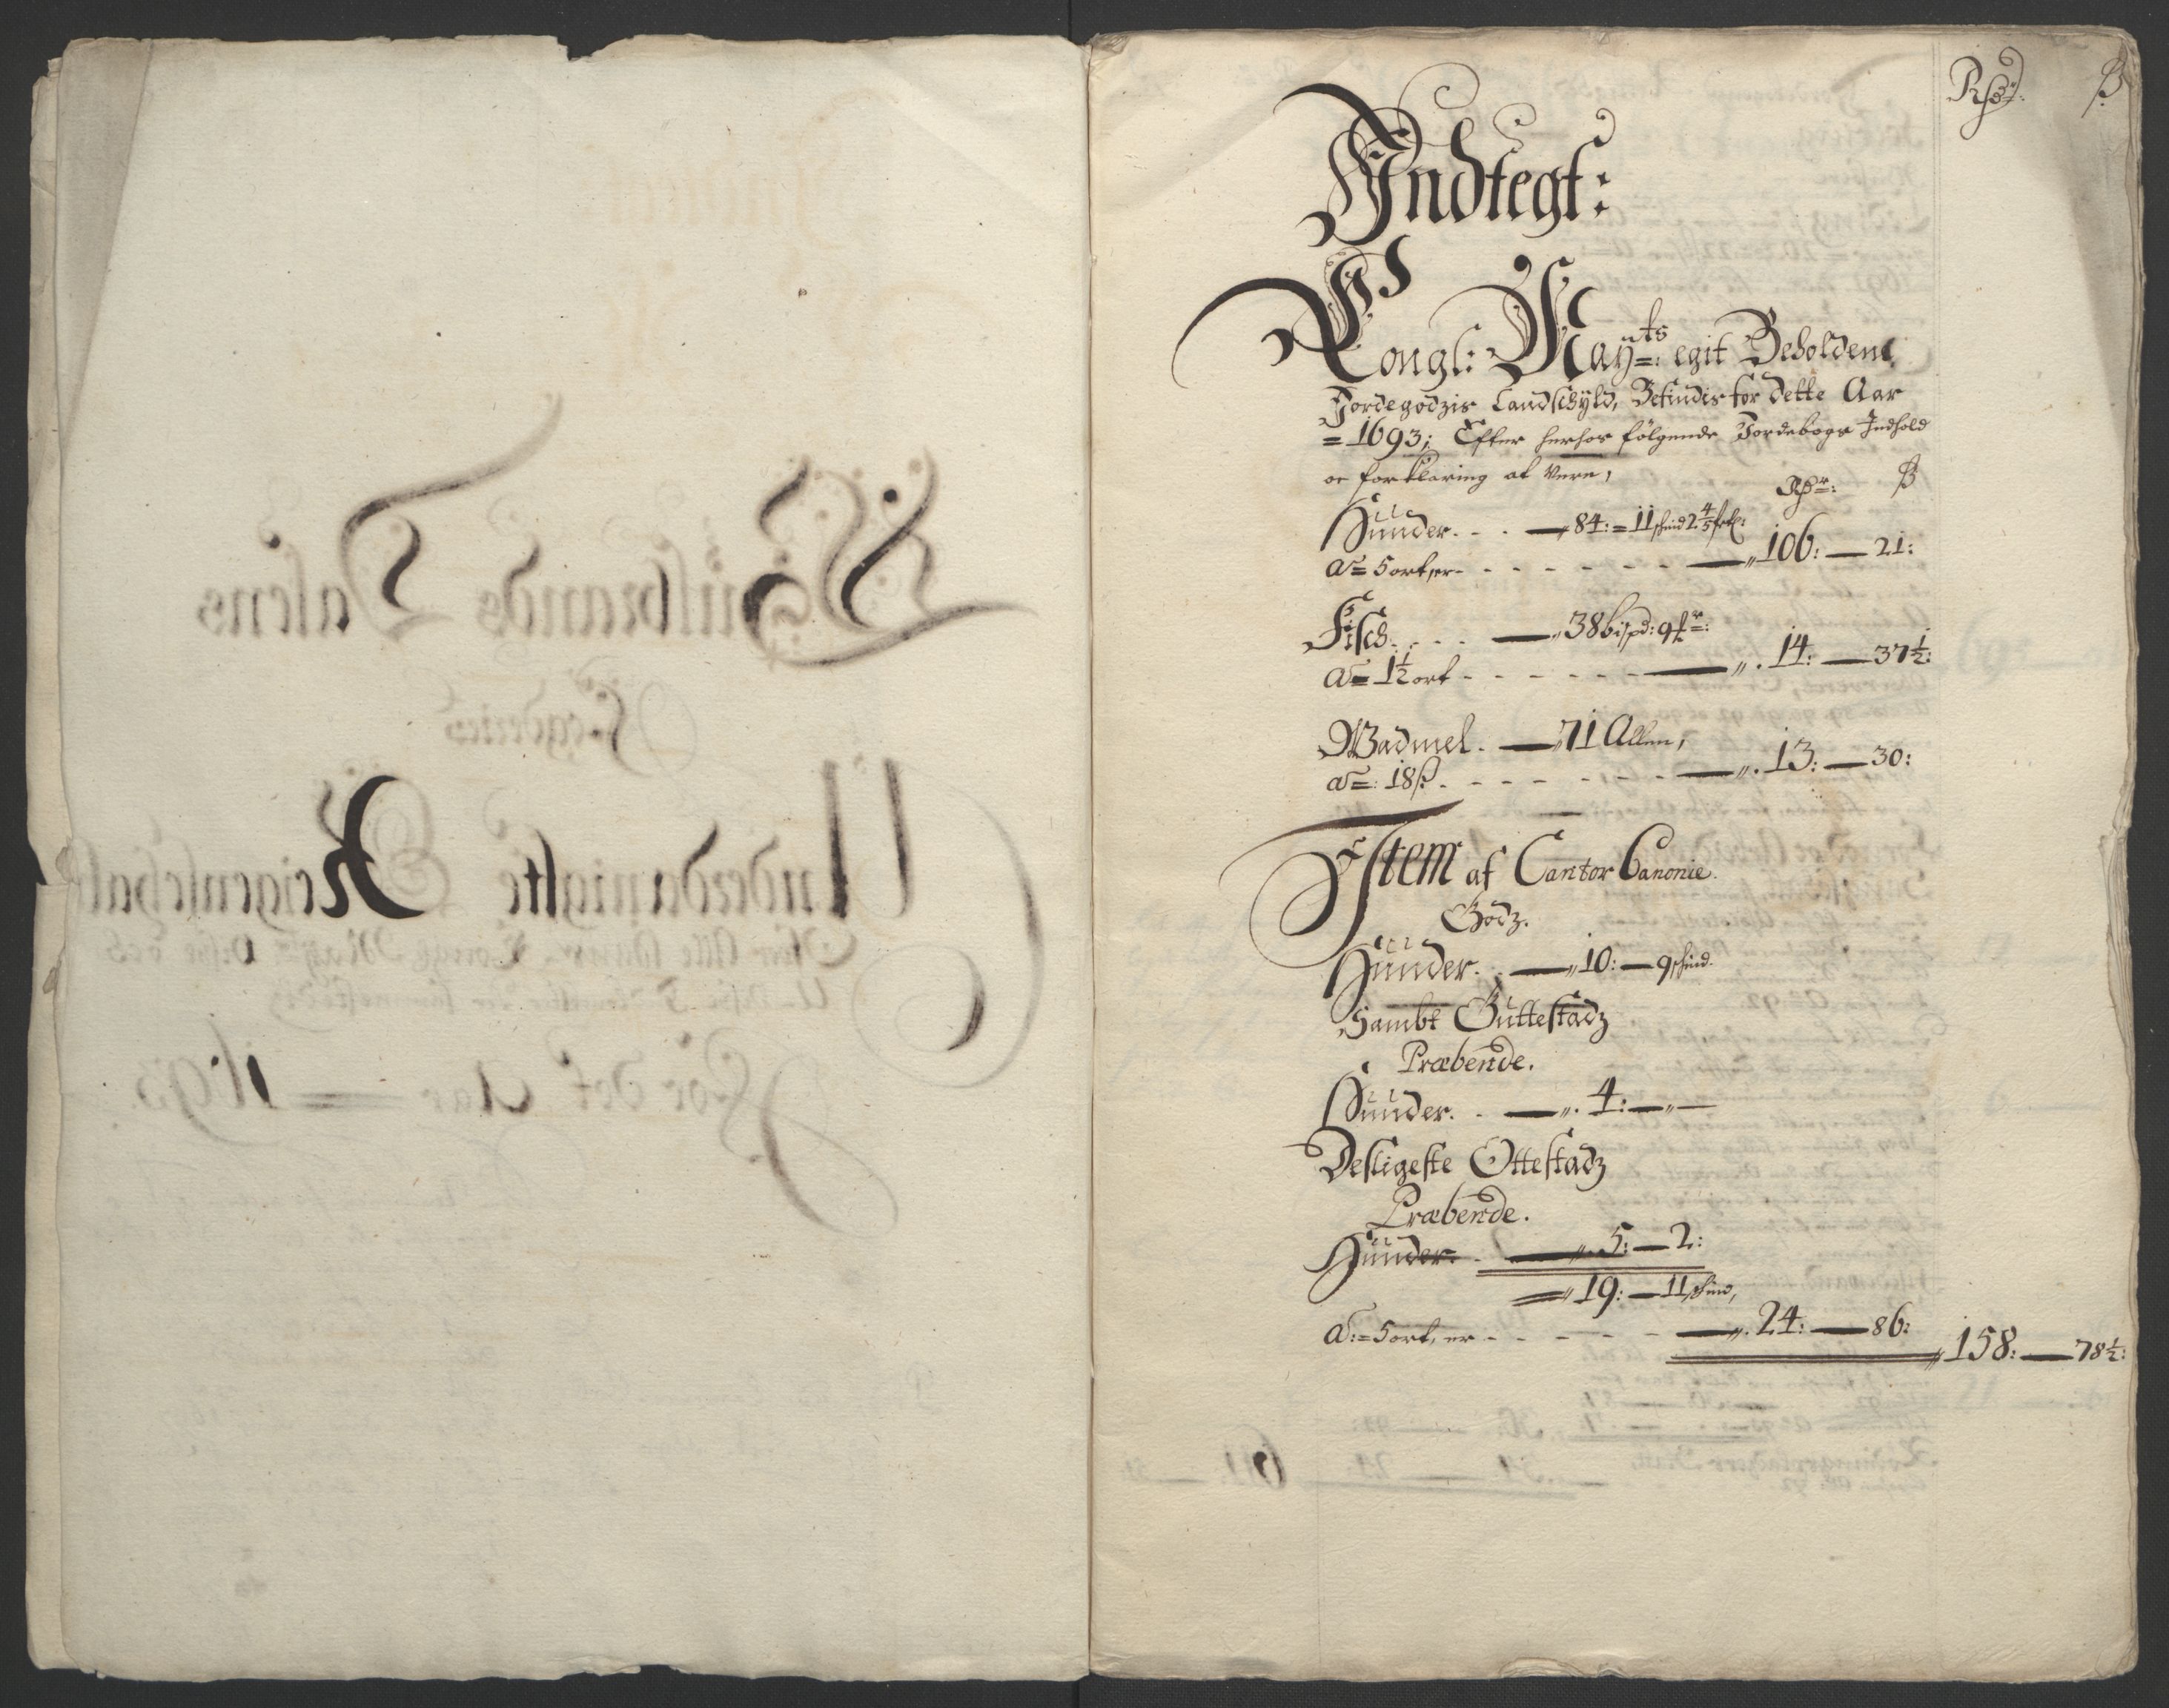 Rhdr: ß
Indtegt:
Kongl: Mayts: egit Beholdene
Jordegodzis Landschÿld, Befindis for dette Aar
=1693; Efter herhos følgende Jordebogs Indhold
oc forklaring at vere,
Rhr: ß
Hünder. - - — 84:=11 schind 2 4/5 
a= 5 ort, er - - - - - - — „106: — 21:
Fisch. - - - — „38 bispd: 9 
a= 1½ ort - - - - - - — „. 14: — 37½:
Wadmel. — „71 Allen,
a=: 18 ß. - - - - - - — „. 13: — 30:
Item af Cantor Canonie.
Godz.
Hünder. — „10: — 9 schind.
Sambt Guttestadz
Præbende.
Hünder. - — „. 4: — „ —
Desligeste Ottestadz
Præbende.
Hünder. - — „. 5: — 2:
„ 19: — 11 schind,
a:= 5 ort, er - - - - - — „. 24: — 86:
„158: — 78½:
Gulbrands Dalens
Fogderies
Underdanigste Reigenschab
For det Aar — 1693.